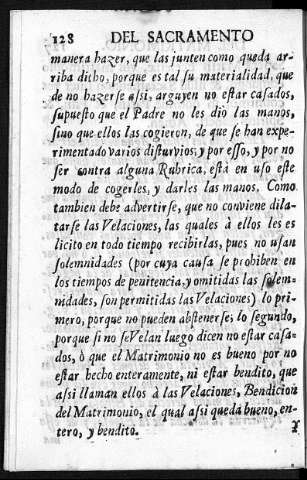 128 DEL SACRAMENTO
manera hazer, que las junten como queda ar-
riba dicho, porque es tal su materialidad, que
de no hazerse assi, arguyen no estar casados,
supuesto que el Padre no les diò las manos,
sino que ellos las cogieron, de que se han expe-
rimentado varios disturvios; y por esso, y por no
ser contra alguna Rubrica, està en uso este
modo de cogerles, y darles las manos. Como
tambien debe advertirse, que no conviene dila-
tarse las Velaciones, las quales à ellos les es
licito en todo tiempo recibirlas, pues no usan
solemnidades (por cuya causa se prohiben en
los tiempos de penitencia, y omitidas las solem-
nidades, son permitidas las Velaciones) lo pri-
mero, porque no pueden abstenerse; lo segundo,
porque si no se Velan luego dicen no estar casa-
dos, ò que el Matrimonio no es bueno por no
estar hecho enteramente, ni estar bendito, que
assi llaman ellos à las Velaciones, Bendicion
del Matrimonio, el qual assi queda bueno, en-
tero, y bendito. Y